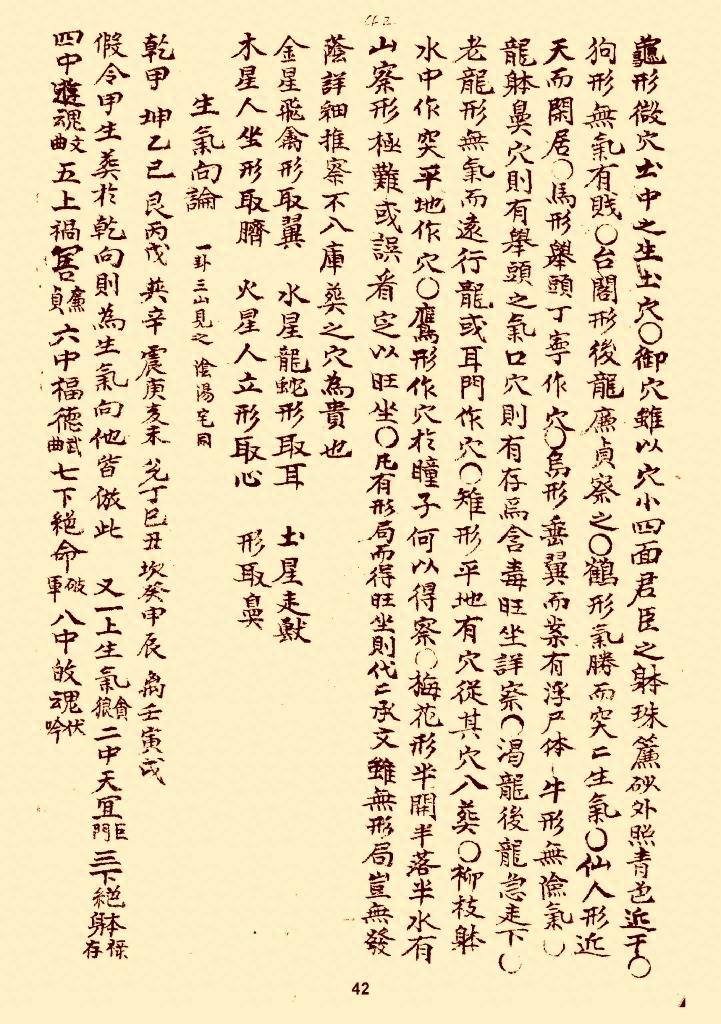 龜形微穴土中之生土穴〇御穴雖以穴小四面君臣之躰珠簾砂外照青色近于〇
狗形無氣有賎〇台閣形後龍廉貞察之〇鶴形氣勝而突二生氣〇仙人形近
天而開居〇馬形舉頭丁寧作穴〇烏形垂翼而案有浮尸体 牛形無氣〇
龍躰鼻穴則有舉頭之氣口穴則有存焉含毒旺坐詳察〇渴龍後龍急走下〇
老龍形無氣而遠行龍或耳門作穴〇雉形平地有穴從其穴八葬〇柳枝躰
水中作突平地作穴〇鷹形作穴於瞳子何以得察〇梅花形半開半落半水有
山察形極難或誤看定以旺坐〇凡有形局而得旺坐則代二承文雖無形局豈無發
蔭詳細推察不入庫葬之穴為貴也
金星飛禽形取翼 水星龍蛇形取耳 土星走獸
木星人坐形取臍 火星人立形取心 形取鼻
生氣向論 一卦三山見之 陰陽宅同
乾甲 坤乙巳 艮丙戊 巽辛 震庚亥未 兌丁巳丑 坎癸申辰 离壬寅戌
假令甲生葬於乾向則為生氣向他皆倣此 又一上生氣貪狼二中天宜巨門三下絕躰祿存
四中遊魂文曲 五上禍害廉貞 六中福德武曲七下絕命破軍 八中魂伏吟
42